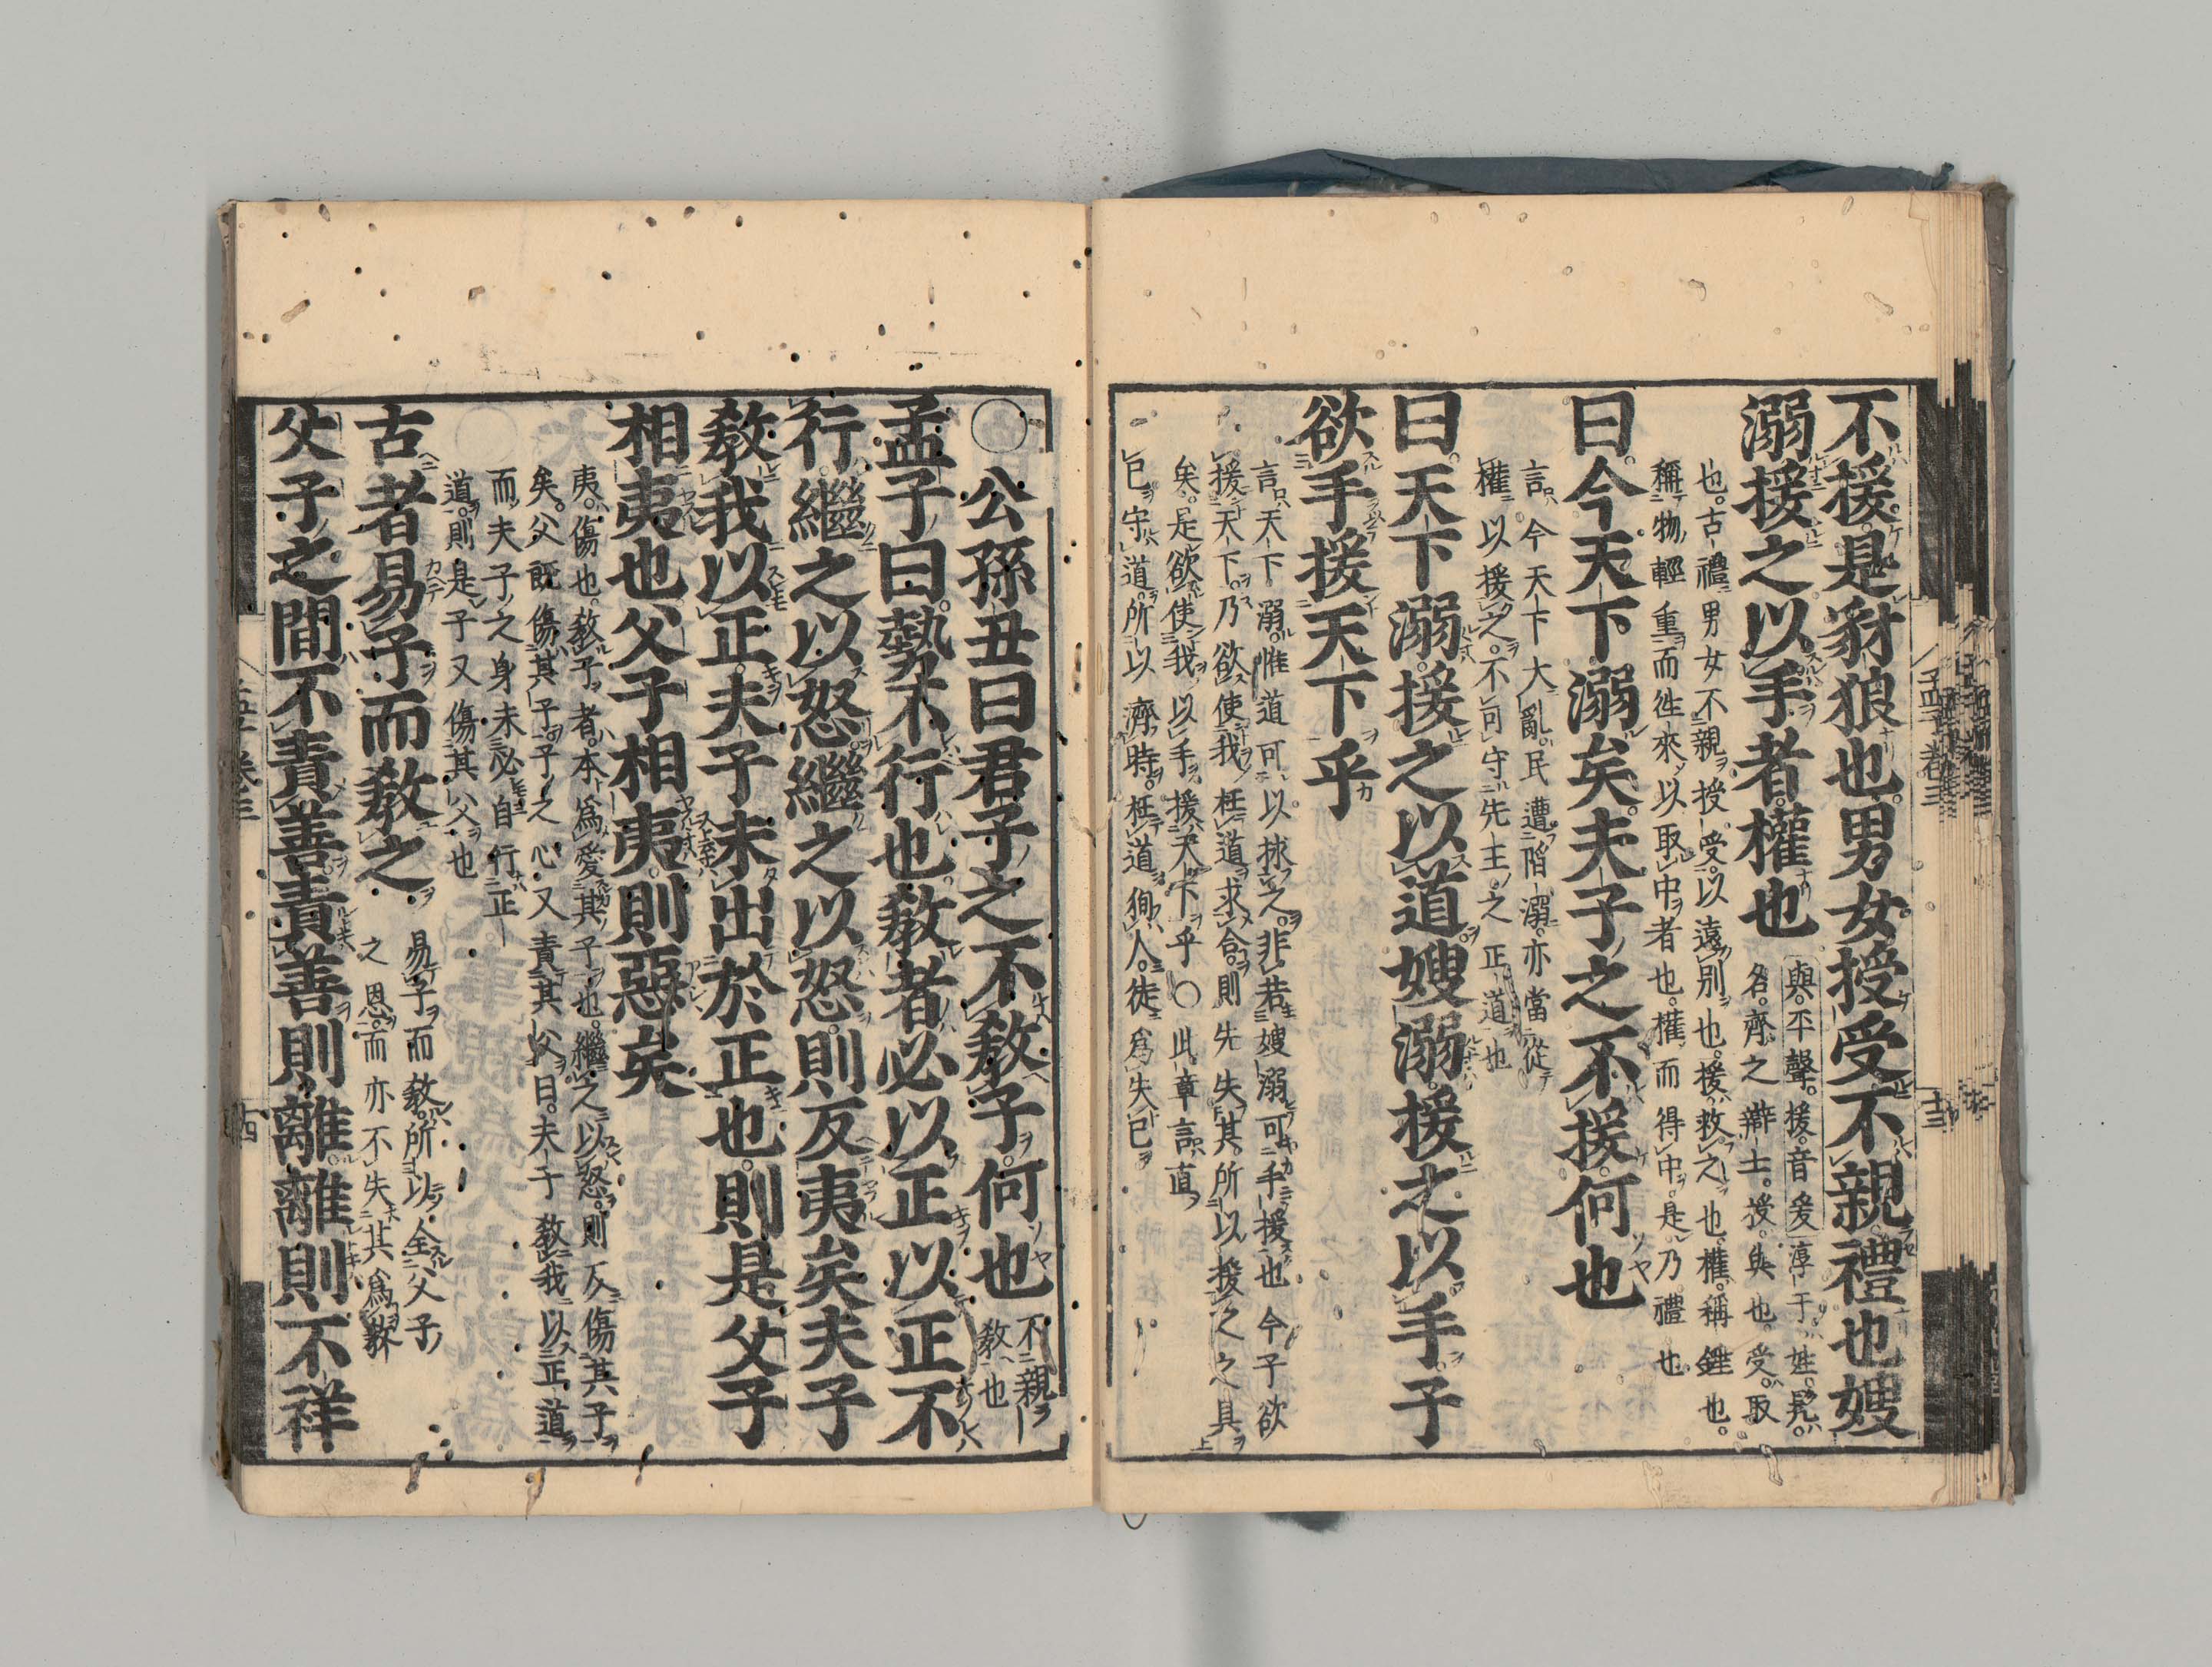 不援是豺狼也男女授受不親禮也嫂
溺援之以手者權也
與平聲援音爰淳于姓髠
名齊之辯士授與也受取
也古禮男女不親授受以遠別也援救之也權稱錘也
稱物輕重而徃來以取中者也權而得中是乃禮也
曰今天下溺矣夫子之不援何也
言今天下大亂民遭陷溺亦當從
權以援之不可守先王之正道也
曰天下溺援之以道嫂溺援之以手子
欲手援天下乎
言天下溺惟道可以捄之非若嫂溺可手援也今子欲
援天下乃欲使我枉道求合則先失其所以援之之具
矣是欲使我以手援天下乎○此章言直
已守道所以濟時枉道徇人徒爲失已
孟子卷三
十三
○公孫丑曰君子之不教子何也
不親
教也
孟子曰勢不行也教者必以正以正不
行繼之以怒繼之以怒則反夷矣夫子
教我以正夫子未出於正也則是父子
相夷也父子相夷則惡矣
夷傷也教子者本爲愛其子也繼之以怒則反傷其子
矣父既傷其子子之心又責其父曰夫子教我以正道
而夫子之身未必自行正
道則是子又傷其父也
古者易子而教之
易子而教所以全父子
之恩而亦不失其爲教
父子之間不責善責善則離離則不祥
孟子卷三